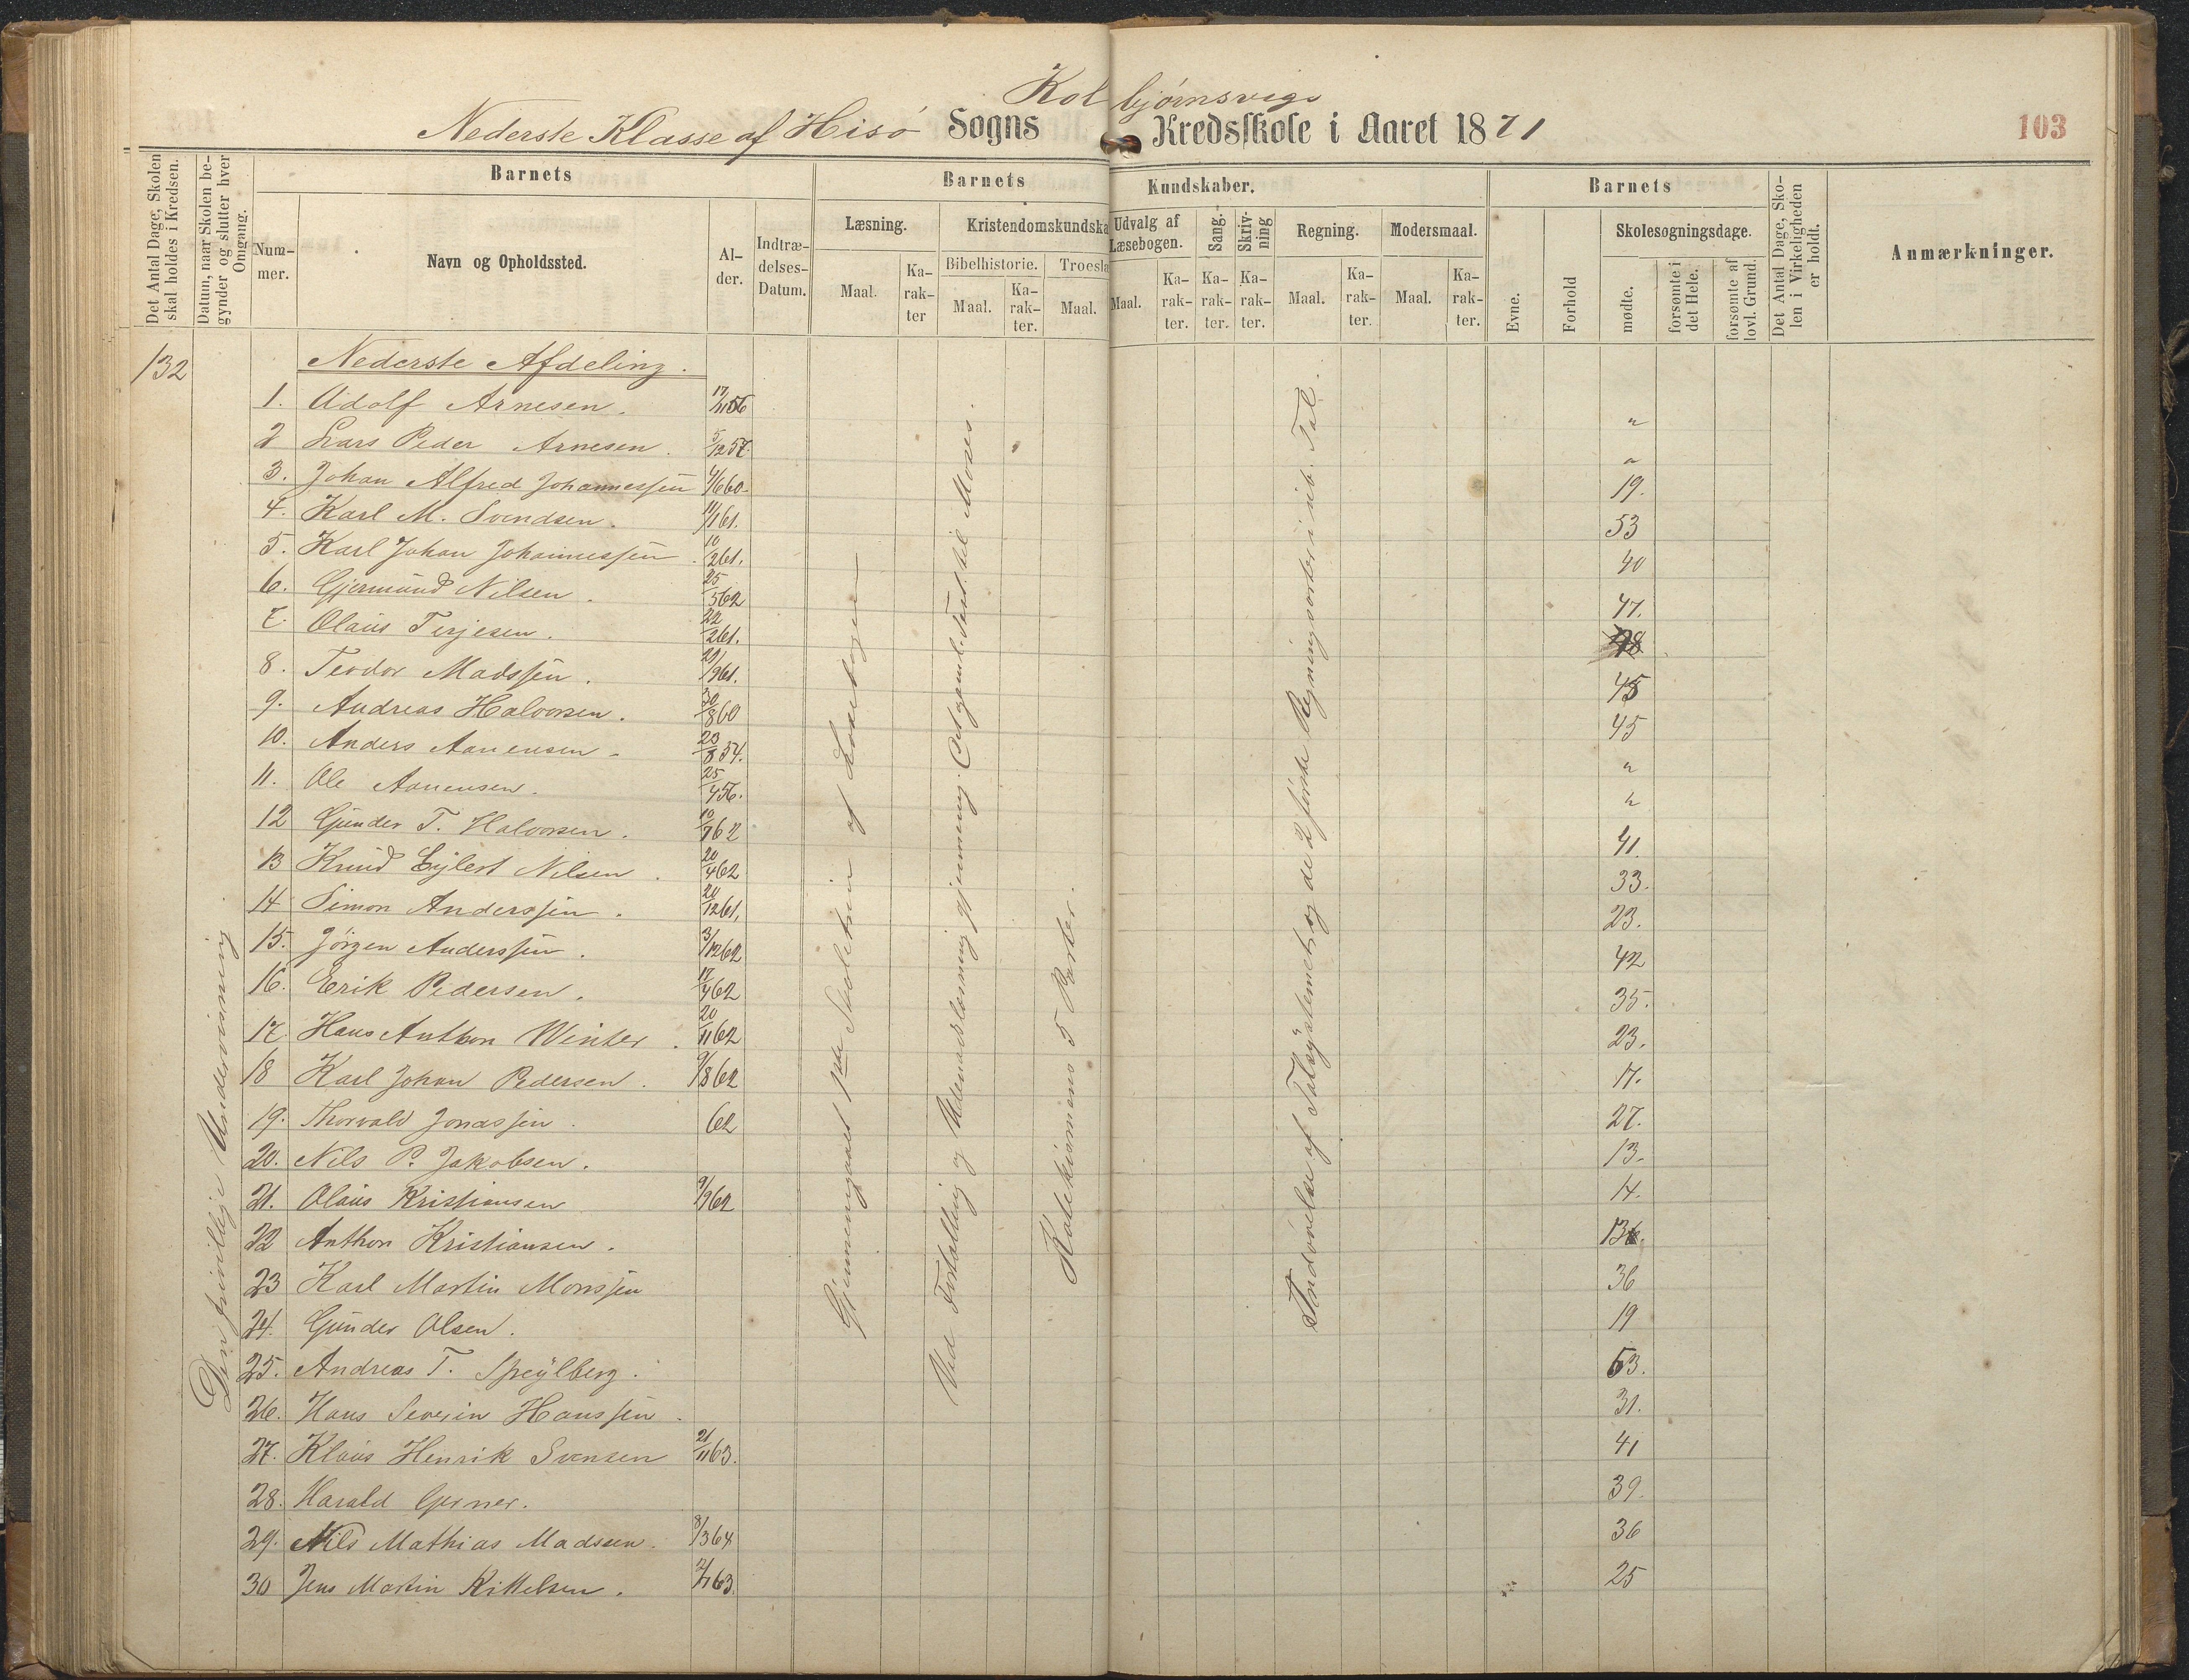 Kolbjørnsvigs
Nederste Klasse af Hisø Sogns Kredsskole i Aaret 1871
103
Det Antal Dage, Skolen skal holdes i Kredsen.
Datum, naar Skolen begynder og slutter hver Omgang.
Barnets
Nummer.
Navn og Opholdssted.
Alder.
Indtrædelses-Datum.
Barnets Kundskaber.
Læsning.
Maal.
Karakter
Kristendomskundska
Bibelhistorie.
Maal.
Karakter.
Troesla
Maal.
Udvalg af Læsebogen.
Maal.
Karakter.
Sang.
Karakter.
Skrivning
Karakter.
Regning.
Maal.
Karakter.
Modersmaal.
Maal.
Karakter.
Barnets
Evne.
Forhold
Skolesøgningsdage.
mødte.
forsømte i det Hele.
forsømte af lovl. Grund.
Det Antal Dage, Skolen i Virkeligheden er holdt.
Anmærkninger.
132
Nederste Afdeling.
1. Adolf Arnesen. 17/11 56 "
2 Lars Peder Arnesen. 5/12 57. "
3. Johan Alfred Johannessen 4/6 60. 19.
4. Karl M. Svendsen. 11/1 61. 53
5. Karl Johan Johannessen. 10/2 61. 40
6. Gjermund Nilsen. 25/5 62 47.
7. Olaus Terjesen. 22/2 61.
8. Teodor Madssen. 29/9 61. 45
9. Andreas Halvorsen. 30/8 60 45
10. Anders Aanensen. 20/8 54. "
11. Ole Aanensen. 25/4 56. "
12 Gunder T. Halvorsen. 10/7 62 41.
13 Knud Eylert Nilsen. 20/4 62 33.
14 Simon Anderssen. 20/12 61, 23.
15. Jørgen Anderssen. 3/12 62 42
16. Erik Pedersen. 17/4 62 35.
17. Hans Anthon Winter. 20/11 62 23.
18 Karl Johan Pedersen. 9/8 62 17.
19. Thorvald Jonassen. 62 27.
20. Nils P. Jakobsen. 13.
21. Olaus Kristiansen 9/9 62 14.
22 Anthon Kristiansen.
23 Karl Martin Monssen 36
24. Gunder Olsen. 19
25. Andreas T. Speylberg. 53.
26. Hans Severin Hanssen. 31.
27. Klaus Henrik Svensen 21/11 63. 41
28. Harald Gerner. 39.
29. Nils Mathias Madssen. 8/3 64 36
30 Jens Martin Kittelsen. 2/1 63. 25
Den frivillige Undervisning.
Gjennemgaaet 1ste Skoletrin af Læsebogen
Ved Fortælling og Udenadslæsning gjennemg. Det gamle Test. til Moses.
Katekismens 5 Parter.
Indøvelse af Talsystemet og de 2 første Regningsarter i ub. Tal.